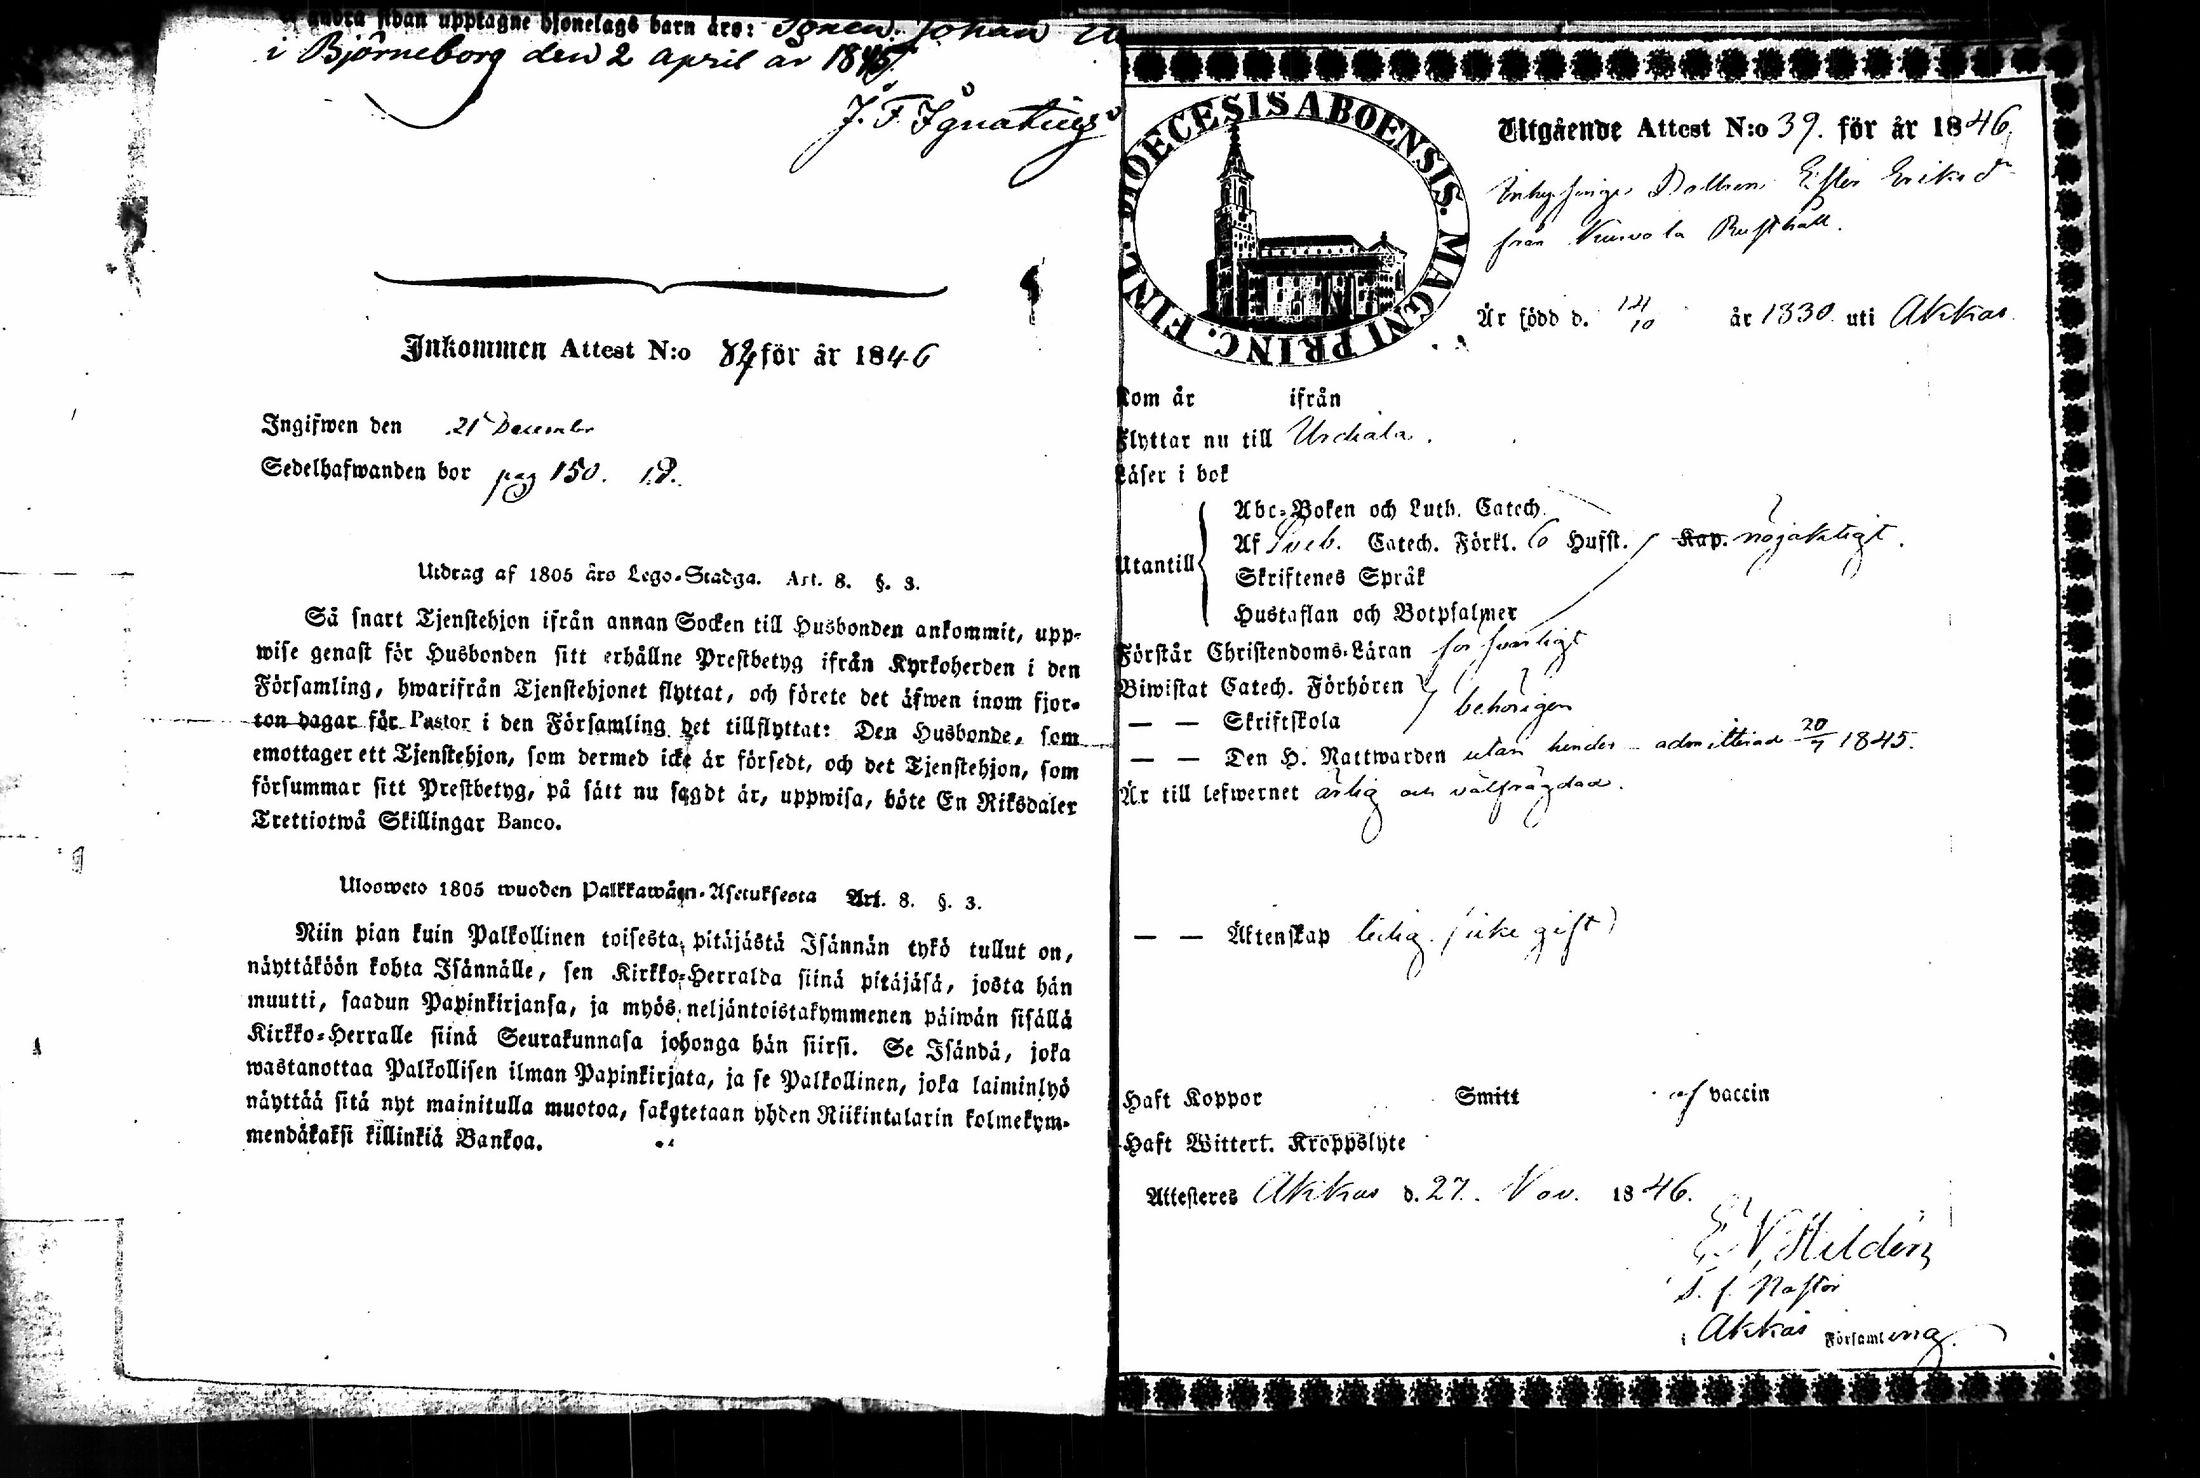 andra sidan upptagne hjonelags barn äro: Johan
i Björneborg den 2 april år 1845.
J. F. Ignatius
Inkommen Attest N:o 84 för år 1846
Ingifwen den 21 December
Sedelhafwanden bor pag 150. 19.
Utdrag af 1805 års Lego-Stadga. Art. 8. §. 3.
Så snart Tjenstehjon ifrån annan Socken till Husbonden ankommit, upp-
wise genast för Husbonden sitt erhållne Prestbetyg ifrån Kyrkoherden i den
Församling, hwarifrån Tjenstehjonet flyttat, och förete det äfwen inom fjor-
ton dagar för Pastor i den Församling det tillflyttat: Den Husbonde, som
emottager ett Tjenstehjon, som dermed icke är försedt, och det Tjenstehjon, som
försummar sitt Prestbetyg, på sätt nu sagdt är, uppwisa, böte En Riksdaler
Trettiotwå Skillingar Banco.
Ulosweto 1805 wuoden Palkkawäen-Asetuksesta Art. 8. §. 3.
Niin pian kuin Palkollinen toisesta pitäjästä Isännän tykö tullut on,
näyttäköön kohta Isännälle, sen Kirkko-Herralda siinä pitäjäsä, josta hän
muutti, saadun Papinkirjansa, ja myös neljäntoistakymmenen päiwän sisällä
Kirkko-Herralle siinä Seurakunnasa johonga hän siirsi. Se Isändä, joka
wastanottaa Palkollisen ilman Papinkirjata, ja se Palkollinen, joka laiminlyö
näyttää sitä nyt mainitulla muotoa, sakotetaan yhden Riikintalarin kolmekym-
mendäkaksi killinkiä Bankoa.
DIOECESIS ABOENSIS. MAGNI PRINC. FINL.
Utgående Attest N:o 39. för år 1846
Eriksd:r
från Rusthåll.
Är född d. 14/10 år 1830 uti Akkas
Kom år ifrån
Flyttar nu till Urdiala.
Läser i bok
Utantill
Abc-Boken och Luth. Catech.
Af Sveb. Catech. Förkl. 6 Hufst. Kap. nöjaktigt.
Skriftenes Språk
Hustaflan och Botpsalmer
Förstår Christendoms-Läran försvarligt
Biwistat Catech. Förhören
— — Skriftskola behörigen
— — Den H. Nattwarden utan hinder admitterad 20/7 1845.
Är till lefwernet ärlig och välfrägdad.
— — Äktenskap ledig. (icke gift)
Haft Koppor Smitt af vaccin
Haft Wittert. Kroppslyte
Attesteres Akkas d. 27. Nov. 1846.
E. N. Hildén
t. f. Pastor
i Akkas Församling.